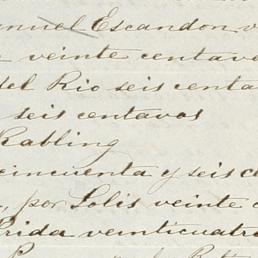 anuel Escandon v
veinte centav
del Rio seis centa
seis centavos
Rabling
cincuenta y seis c
por Solis veinte
Prida veinticuatro